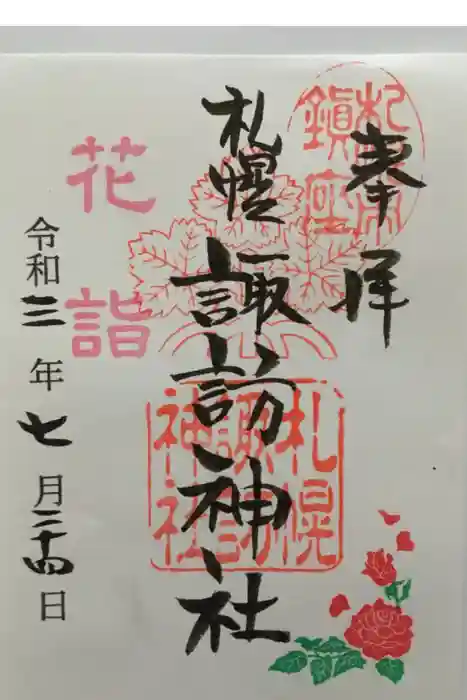 奉拝
札幌東鎮座
札幌諏訪神社
札幌諏訪神社
花詣
令和三年七月二十四日